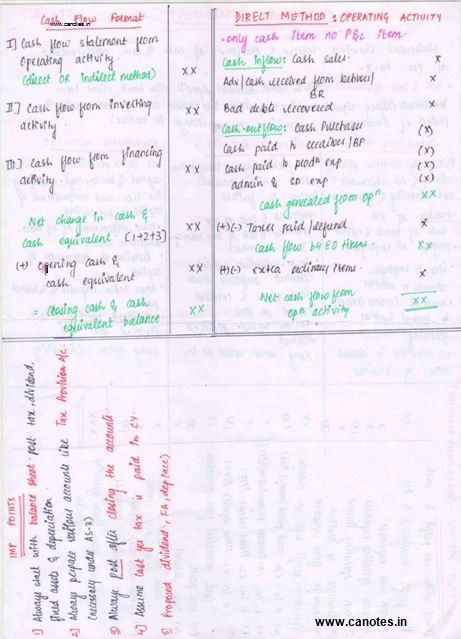 Cash Flow Format
I] Cash flow statement from
Operating activity
(direct OR indirect method) XX
II] Cash flow from investing
activity. XX
III.] Cash flow from financing
activity. XX
Net change in cash &
cash equivalent. [1+2+3] XX
(+) Opening cash &
cash equivalent XX
= Closing cash & cash
equivalent balance XX
DIRECT METHOD : OPERATING ACTIVITY
- only cash item no P&L item
Cash inflow: Cash sales x
Adv| Cash received from debtors| x
BR
Bad debts recovered x
Cash outflow: Cash Purchases (x)
Cash paid to creditors |BP (x)
Cash paid to prodn exp (x)
admin & SD exp (x)
Cash generated from opn XX
(+)(-) Taxes paid/refund x
Cash flow b4 EO items XX
(+)(-) extra ordinary items x
Net cash flow from
opn activity XX
IMP POINTS
1] Always start with balance sheet. post tax, dividend,
fixed assets & depreciation.
2] Always prepare various accounts like Tax Provision A/c.
(necessary under AS-3)
3) Always post after closing the accounts.
4] Assume last yr tax is paid in CY.
5) Proposed dividend, FA, dep(acc)
www.canotes.in
www.canotes.in